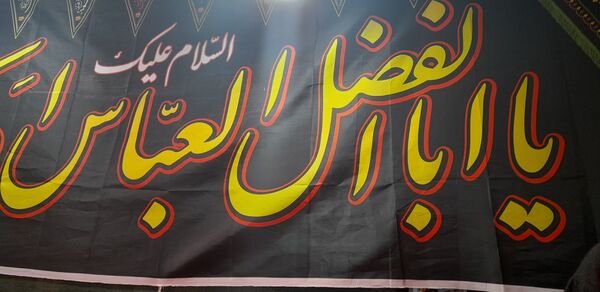 السّلام علیک
یا ابا الفضل العبّاس